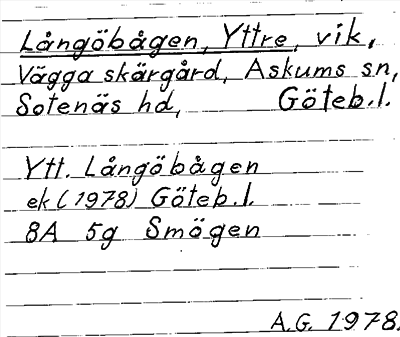 Långöbågen, Yttre, vik,
Vägga skärgård, Askums sn,
Sotenäs hd, Göteb.l.
Ytt. Långöbågen
ek (1978) Göteb.l.
8A 5g Smögen
A.G. 1978.